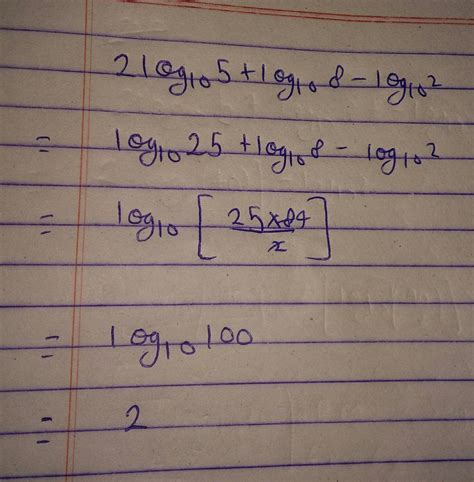 2log₁₀5+log₁₀8-log₁₀2
= log₁₀25+log₁₀8-log₁₀2
= log₁₀[25×84/2]
= log₁₀100
= 2